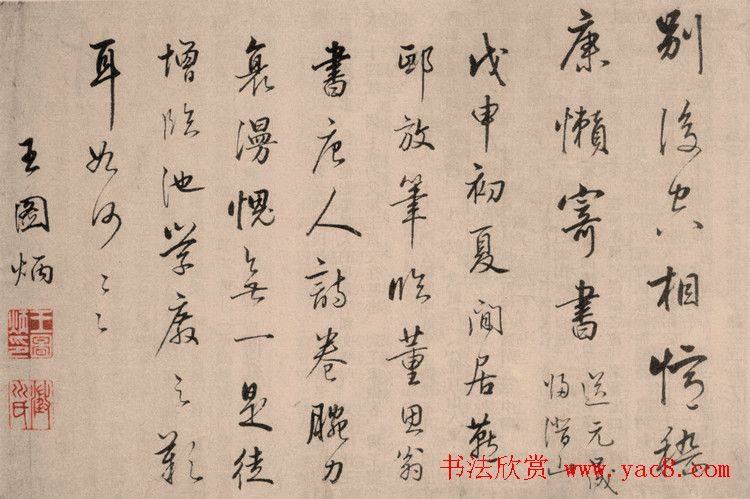 別後空相憶嵇
康懶寄書
送元晟
歸潛山
戊申初夏閒居
放筆臨董思翁
書唐人詩卷腕力
衰漫愧無一是徒
增臨池學廢之歎
耳如何〻〻
王圖炳
王圖炳印
书法欣赏 www.yac8.com